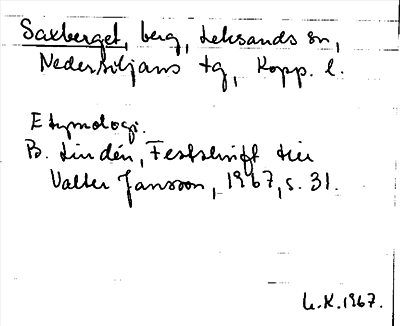 Saxberget, berg, Leksands sn,
Nedersiljans tg, Kopp. l.
Etymologi.
B. Lindén, Festskrift till
Valter Jansson, 1967, s. 31.
L.K. 1967.